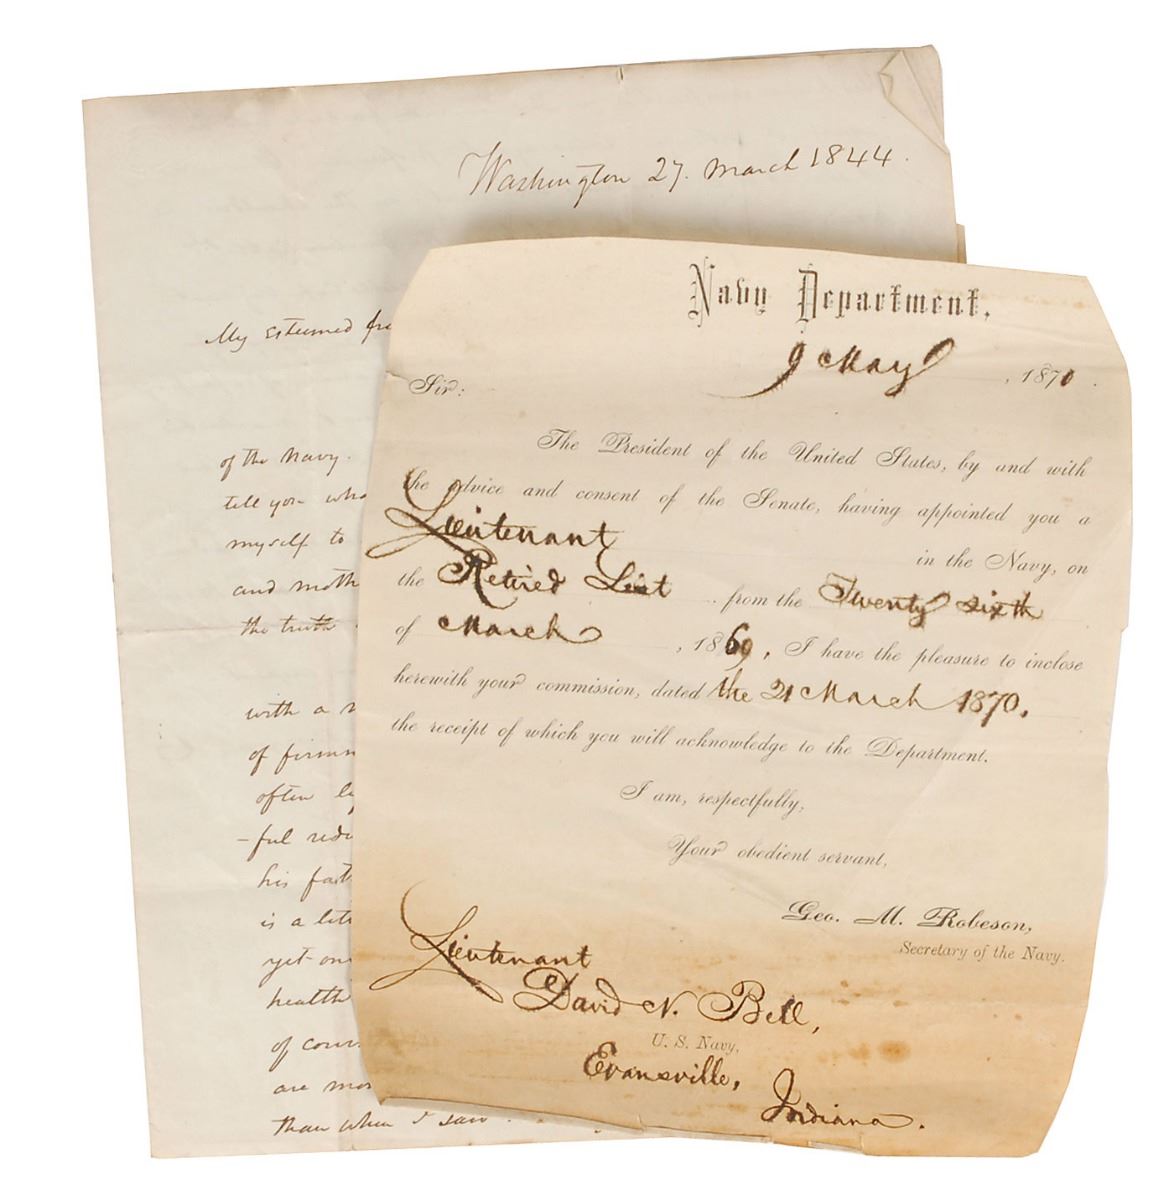 Washington 27. March 1844.
My esteemed
of the Navy.
tell you
myself to
and
the truth
with a
of
often
-ful
his
is a
yet
health
of
are
than when I saw
Navy Department,
9 May, 1870.
Sir:
The President of the United States, by and with
the advice and consent of the Senate, having appointed you a
Lieutenant in the Navy, on
the Retired List from the Twenty sixth
of March, 1869, I have the pleasure to inclose
herewith your commission, dated the 21 March 1870.
the receipt of which you will acknowledge to the Department.
I am, respectfully,
Your obedient servant,
Geo. M. Robeson,
Secretary of the Navy.
Lieutenant
David N. Bell,
U. S. Navy,
Evansville,
Indiana.